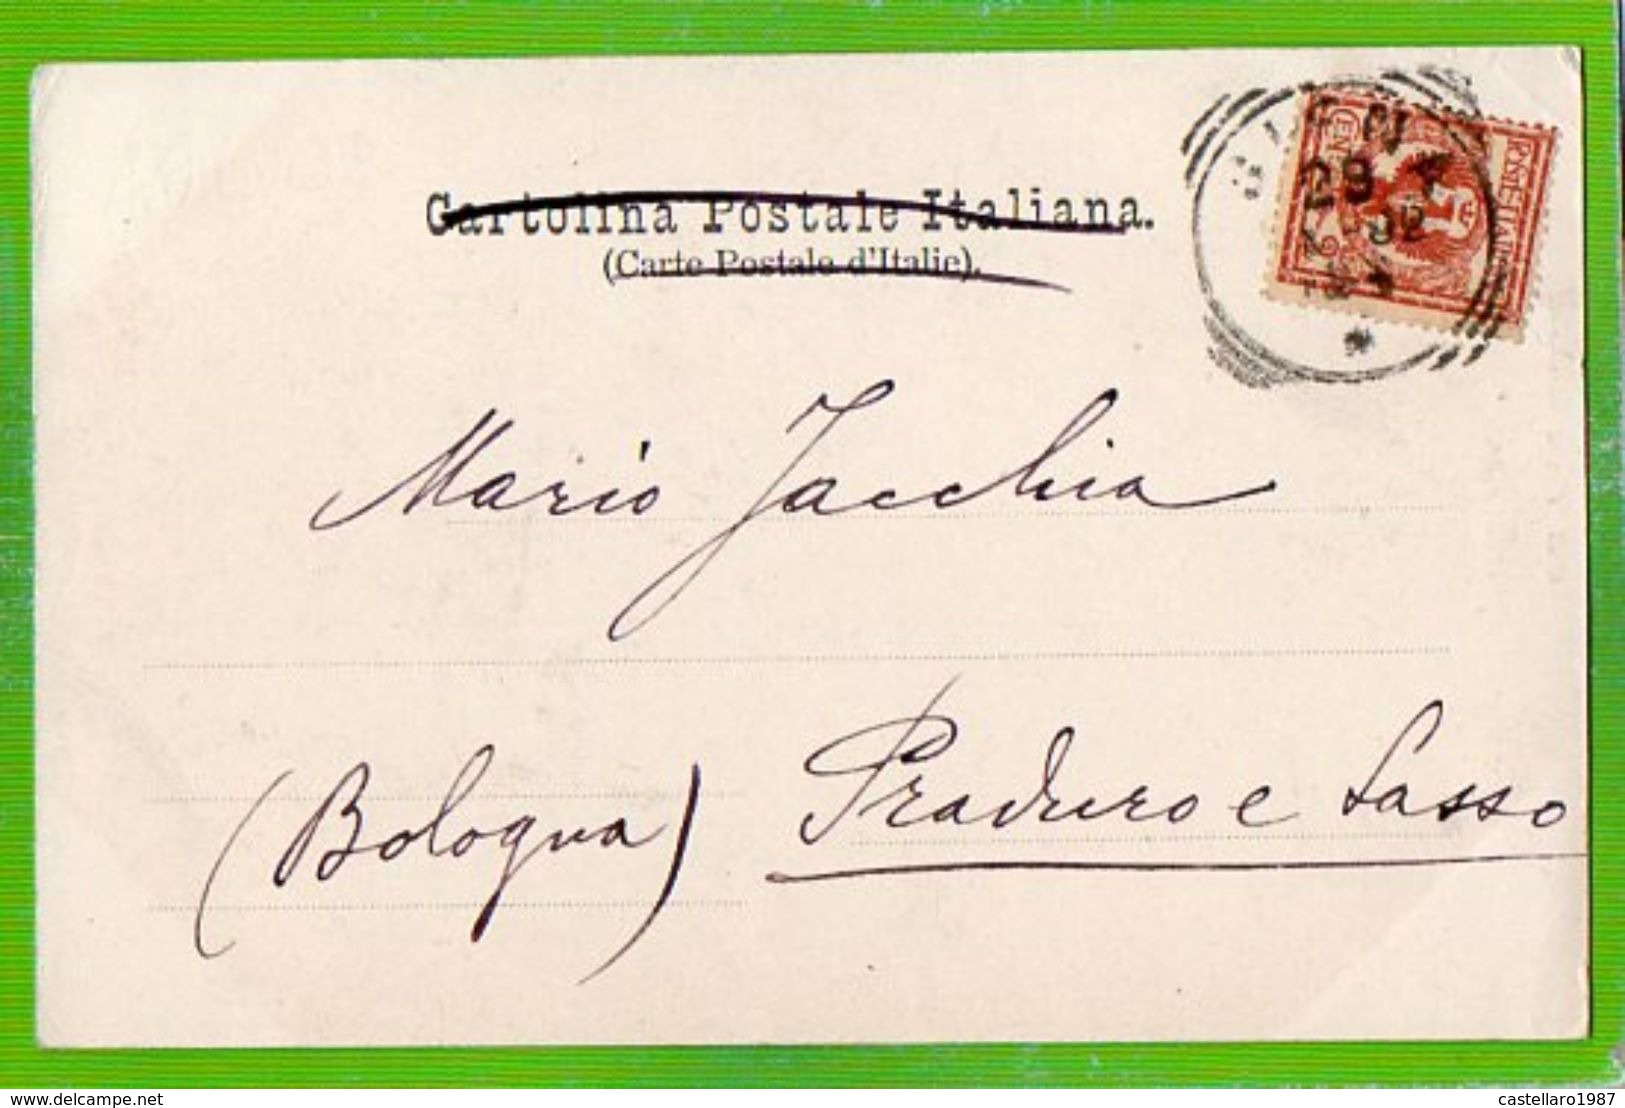 Cartolina Postale Italiana.
(Carte Postale d'Italie).
SIENA
29
02
POSTE ITALIANE
Mario Jacchia
(Bologna) Praduro e Sasso
delcampe.net
castellaro1987